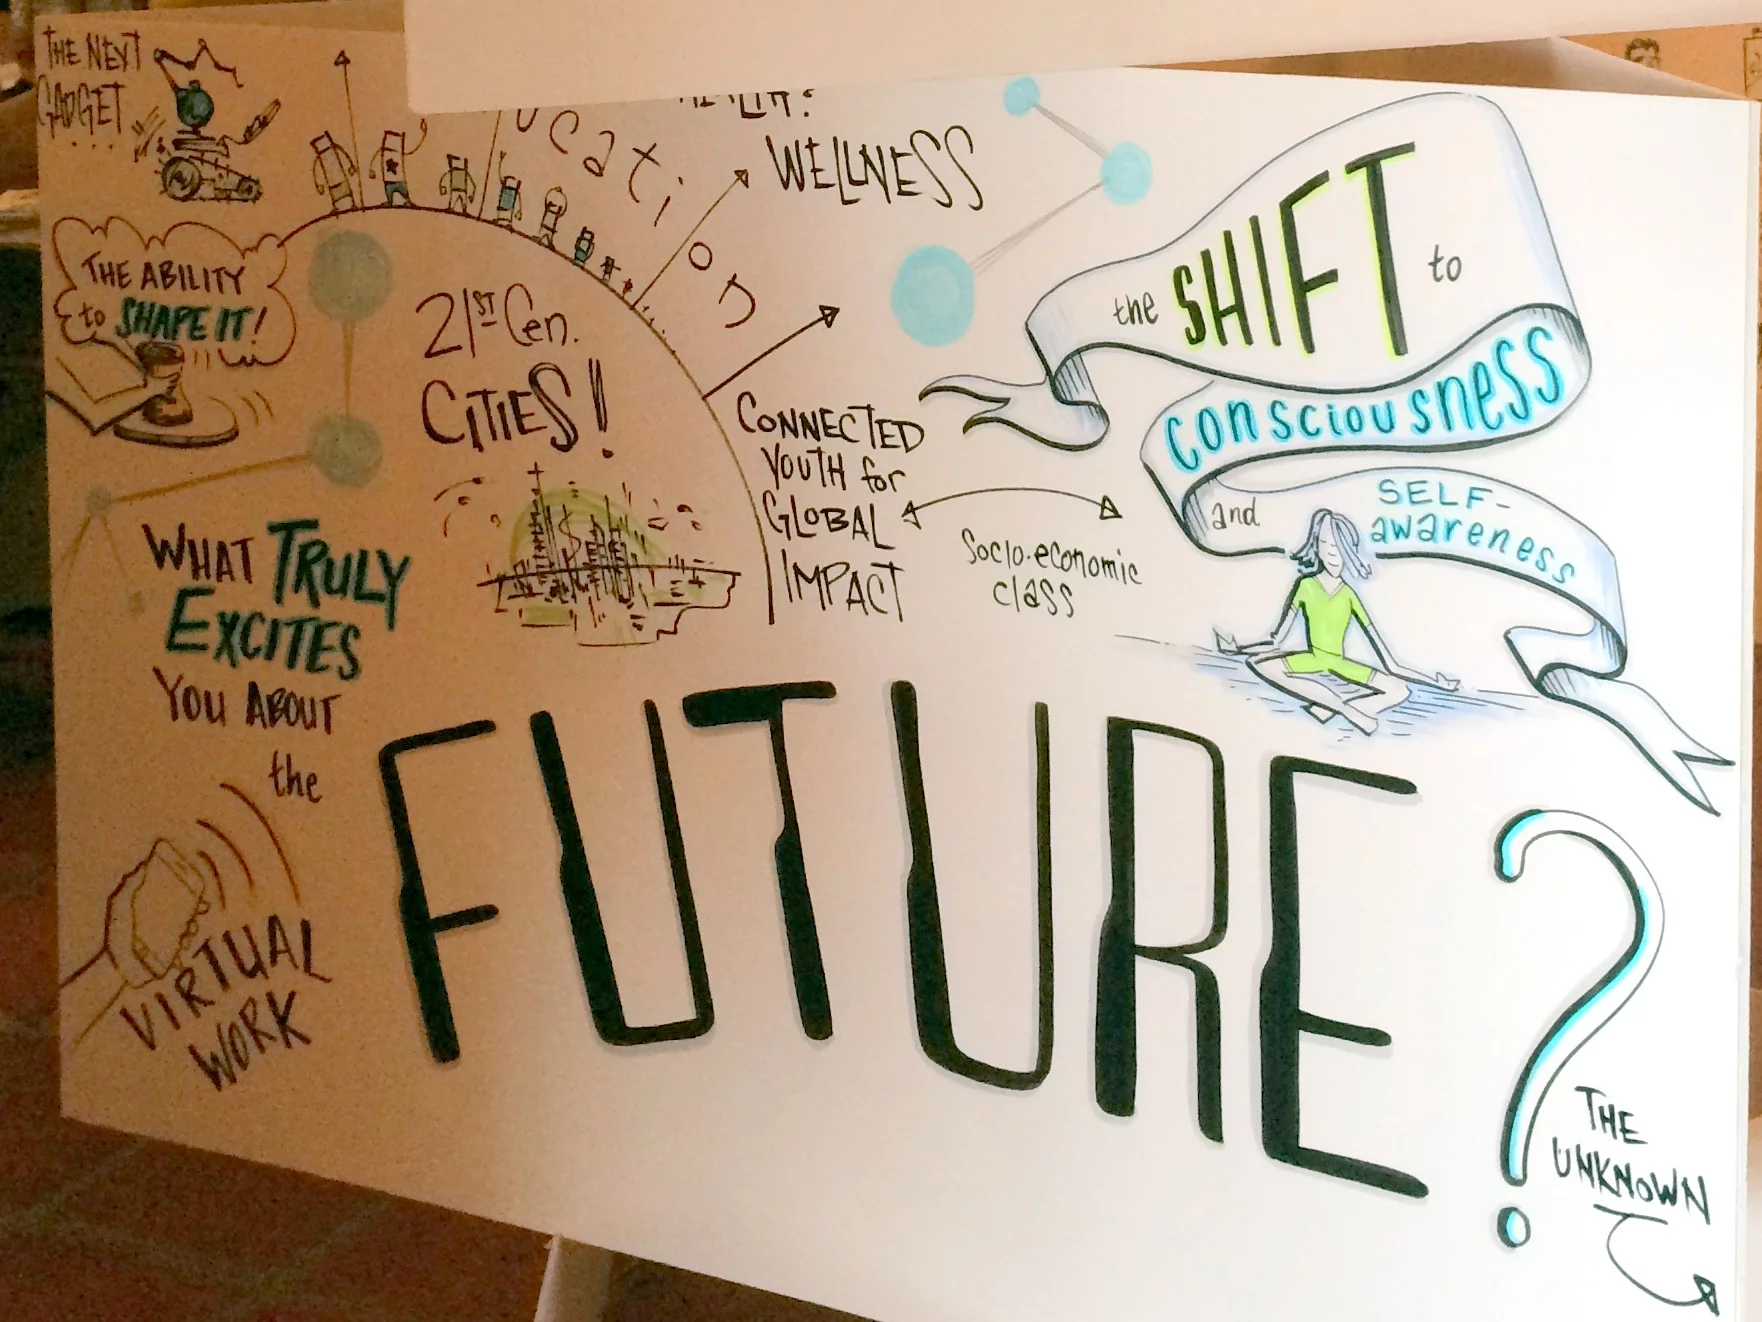 THE NEXT
GADGET
....
THE ABILITY
to SHAPE IT!
21ST Cen.
CITIES!
ucation
WELLNESS
CONNECTED
YOUTH for
GLOBAL
IMPACT
Socio-economic
class
the SHIFT to
CONSCIOUSNESS
and SELF-
awareness
WHAT TRULY
EXCITES
YOU ABOUT
the
FUTURE?
VIRTUAL
WORK
THE
UNKNOWN